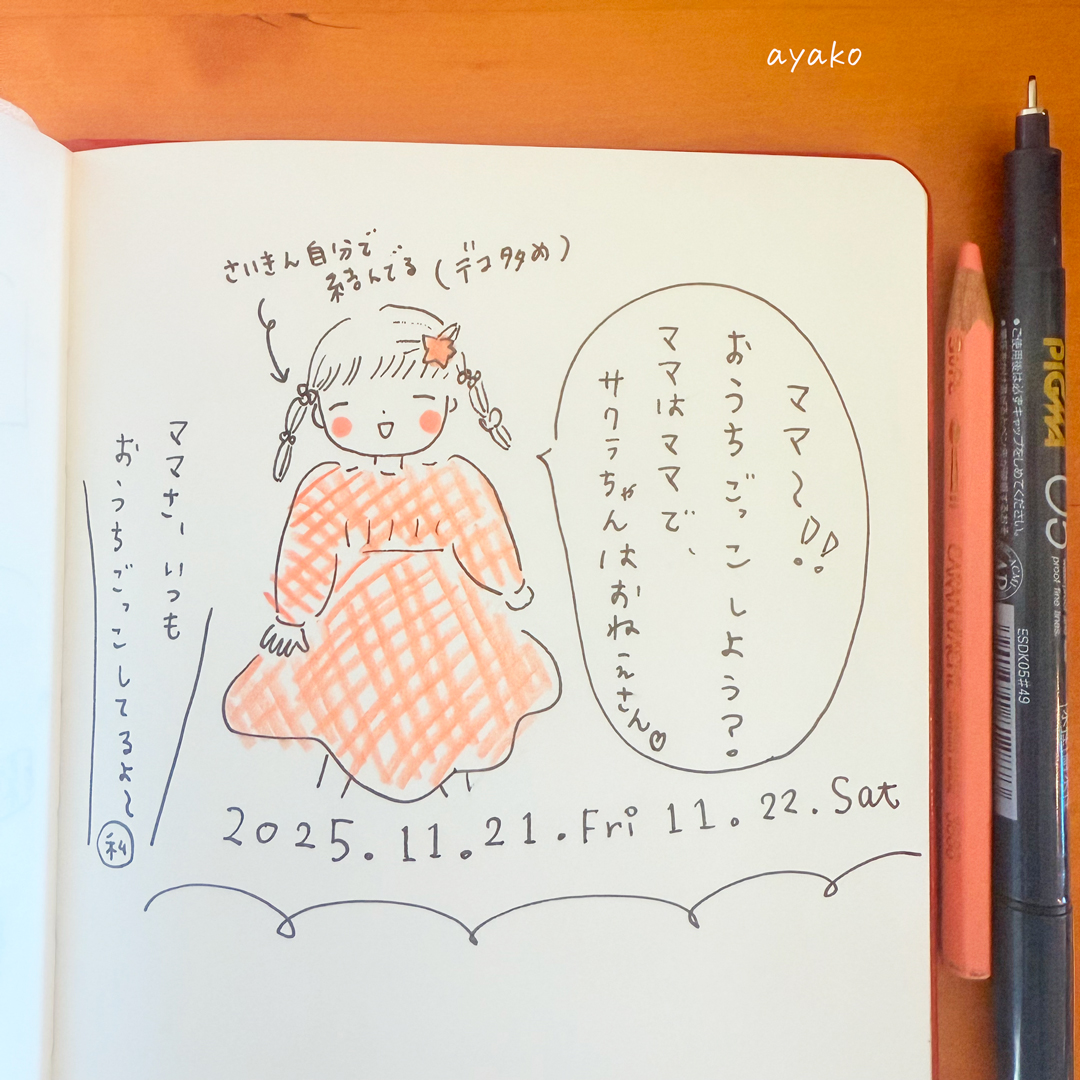 ayako
さいきん自分で
結んでる(デコ多め)
ママ〜!!
おうちごっこしよう?。
ママはママで、
サクラちゃんはおねえさん♡
ママさ、いつも
おうちごっこしてるよ〜
私
2025.11.21.Fri 11.22.Sat
PIGMA
05
proof fine lines.
ESDK05#49
●ご使用後は必ずキャップをしめてください。